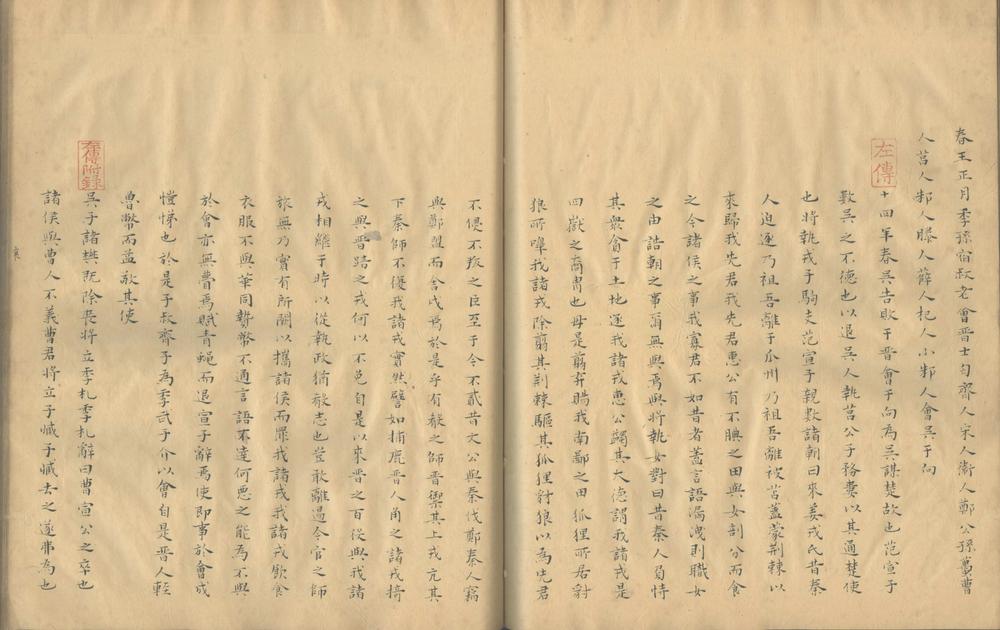 春王正月季孫宿叔老會晉士匄齊人宋人衛人鄭公孫蠆曹
人莒人邾人滕人薛人杞人小邾人會吳于向
左傳
十四年春吳告敗于晉會于向為吳謀楚故也范宣子
數吳之不德也以退吳人執莒公子務婁以其通楚使
也將執戎子駒支范宣子親數諸朝曰來姜戎氏昔秦
人迫逐乃祖吾離于瓜州乃祖吾離被苫蓋蒙荆棘以
來歸我先君我先君惠公有不腆之田與女剖分而食
之今諸侯之事我寡君不如昔者蓋言語漏洩則職女
之由詰朝之事爾無與焉與將執女對曰昔秦人負恃
其衆貪于土地逐我諸戎惠公蠲其大德謂我諸戎是
四嶽之裔胄也毋是翦棄賜我南鄙之田狐狸所居豺
狼所嘷我諸戎除翦其荆棘驅其狐狸豺狼以為先君
不侵不叛之臣至于今不貳昔文公與秦伐鄭秦人竊
與鄭盟而舍戍焉於是乎有殽之師晉禦其上戎亢其
下秦師不復我諸戎實然譬如捕鹿晉人角之諸戎掎
之與晉踣之戎何以不免自是以來晉之百役與我諸
戎相繼于時以從執政猶殽志也豈敢離逷今官之師
旅無乃實有所闕以攜諸侯而罪我諸戎我諸戎飲食
衣服不與華同贄幣不通言語不達何惡之能為不與
於會亦無瞢焉賦青蠅而退宣子辭焉使即事於會成
愷悌也於是子叔齊子為季武子介以會自是晉人輕
魯幣而益敬其使
左傳附錄
吳子諸樊既除喪將立季札季札辭曰曹宣公之卒也
諸侯與曹人不義曹君將立子臧子臧去之遂弗為也